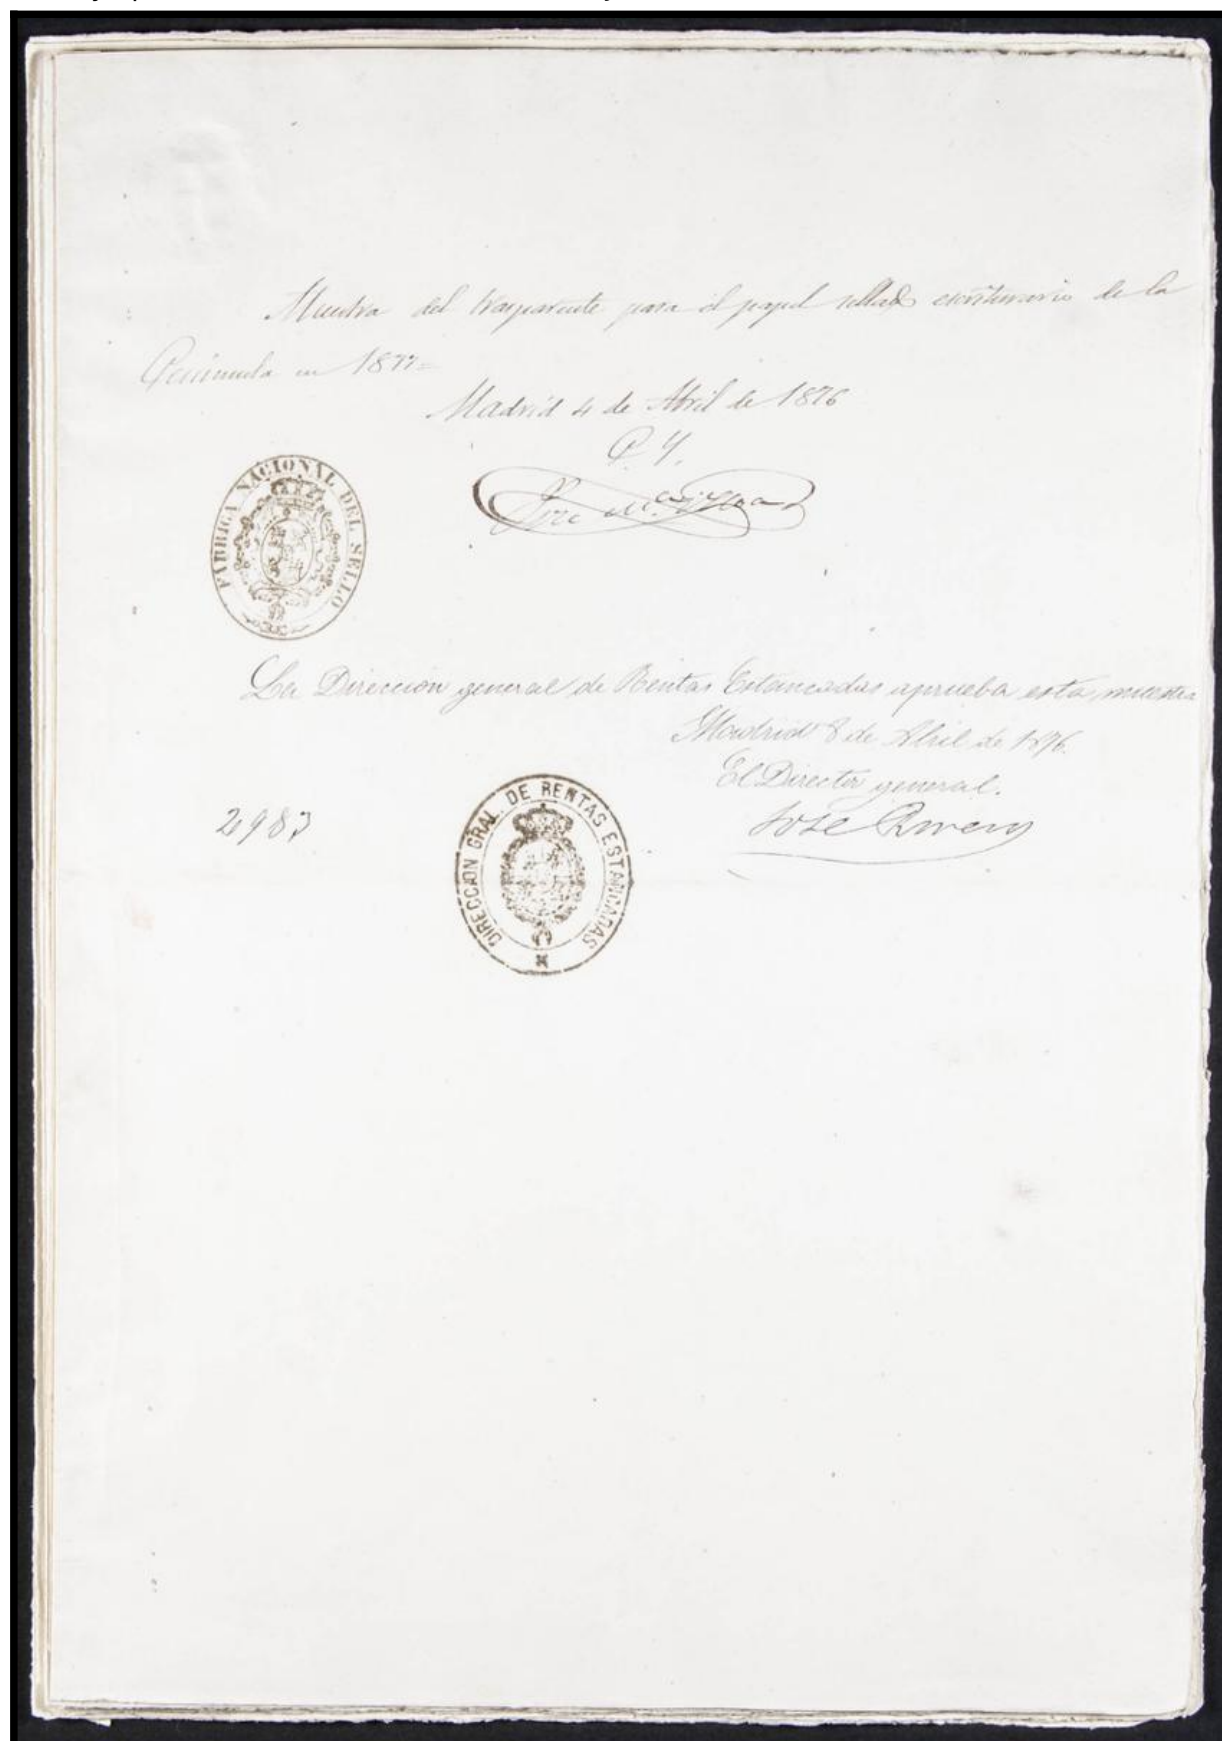 Muestra del trasparente para el papel sellado escriturario de la
Península en 1877=
Madrid 4 de Abril de 1876
P. Y.
FÁBRICA NACIONAL DEL SELLO
La Dirección general de Rentas Estancadas aprueba esta muestra
Madrid 8 de Abril de 1876.
El Director general.
2983
José Rivero
DIRECCION GRAL. DE RENTAS ESTANCADAS